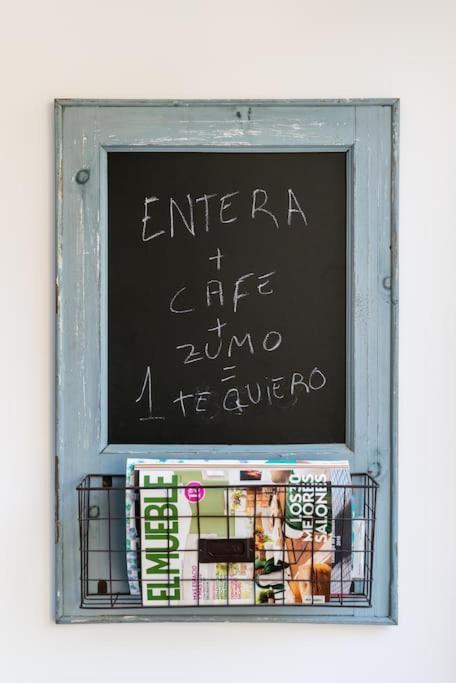 ENTERA
+
CAFE
+
ZUMO
=
1 TE QUIERO
EL MUEBLE
LOS 30
MEJORES
SALONES